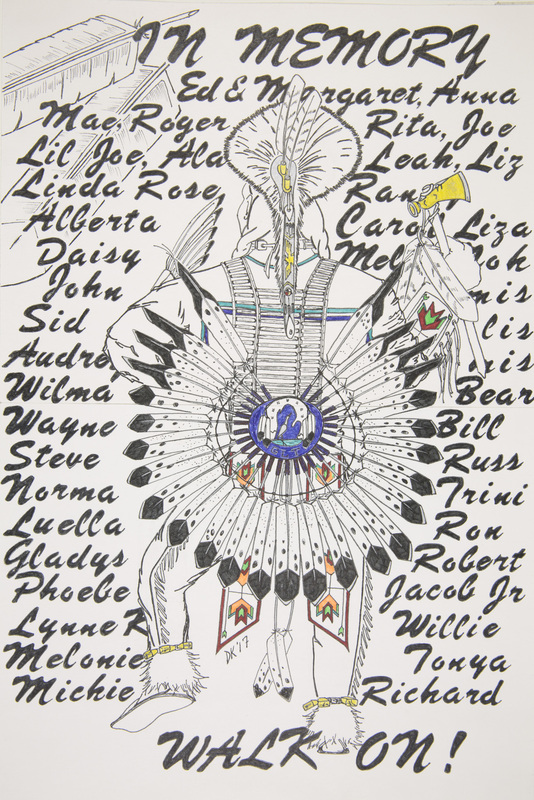 IN MEMORY
Ed & Margaret, Anna
Mae, Roger Rita, Joe
Lil Joe, Ala Leah, Liz
Linda Rose Ran
Alberta Carol Liza
Daisy Mel
John nis
Sid lis
Audre nis
Wilma Bear
Wayne Bill
Steve Russ
Norma Trini
Luella Ron
Gladys Robert
Phoebe Jacob Jr
Lynne R Willie
Melonie Tonya
Michie Richard
DK '17
WALK ON!